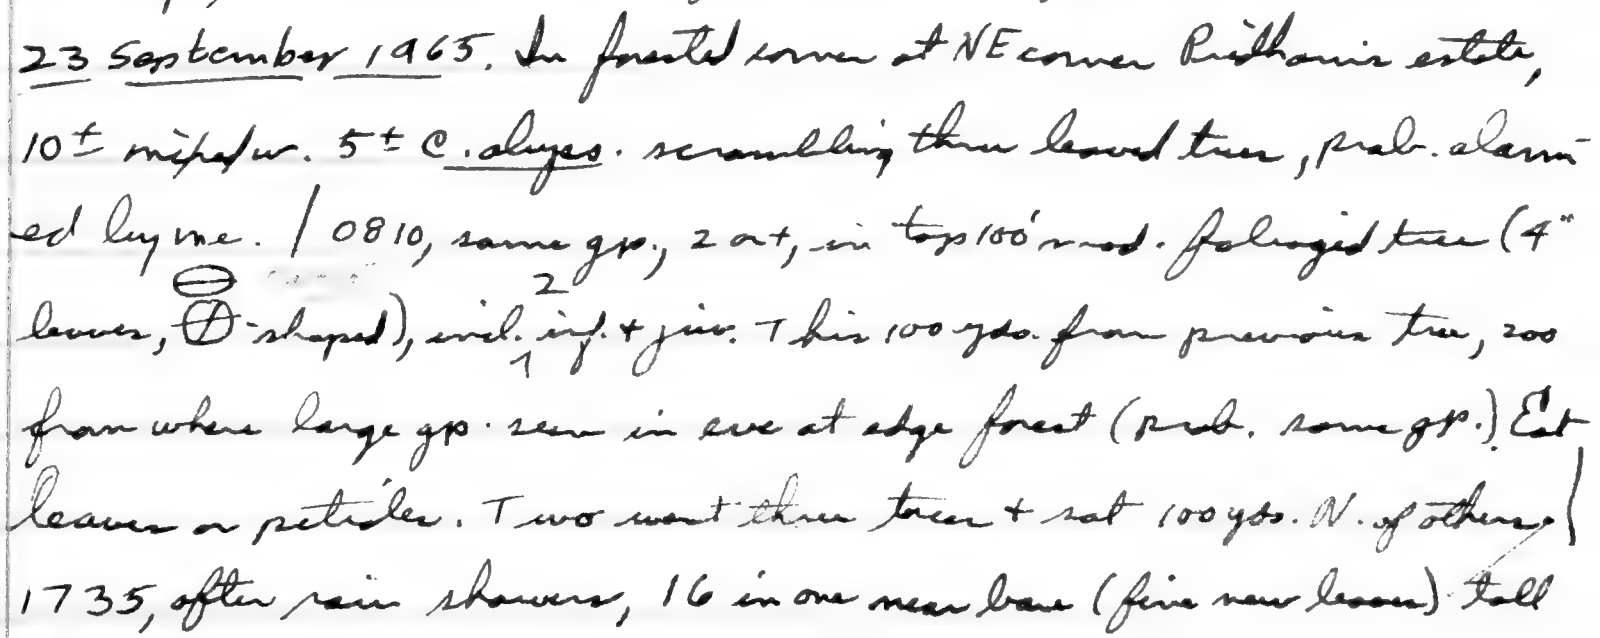 23 September 1965. In forested corner at NE corner Pridham's estate,
10± 5± C. abyss. scrambling thru leaved trees, prob. alarm-
ed by me. / 0810, same gp., 2 or +, in top 100' mod. foliaged tree (4"
leaves, -shaped), incl. 1 inf. + 2 juv. This 100 yds. from previous tree, 200
from where large gp. seen in eve at edge forest (prob. same gp.). Eat
leaves or petioles. Two went thru trees + sat 100 yds. N. of others. /
1735, after rain showers, 16 in one near bare (fine new leaves) tall